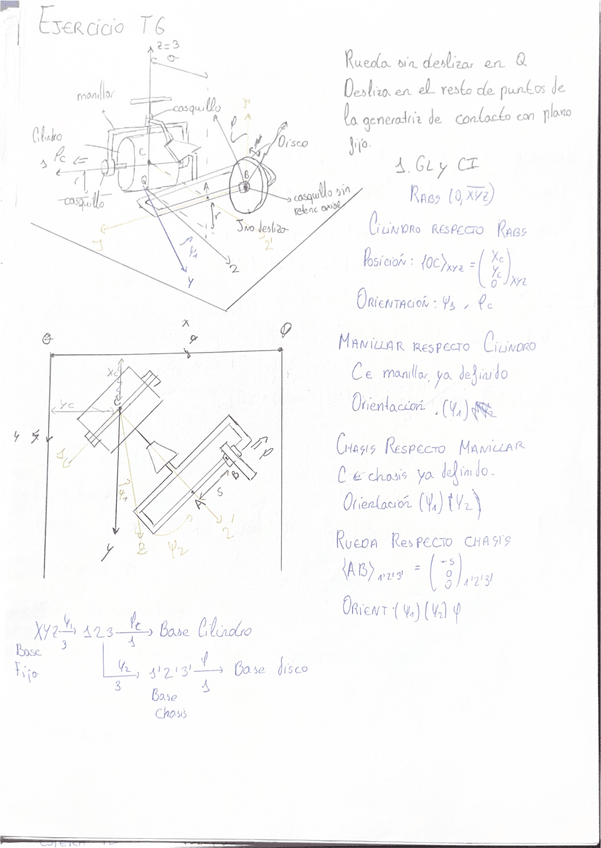 EJERCICIO T6
z=3
manillar
casquillo
Cilindro
Disco
C
casquillo
casquillo sin
retenc axial
A
B
r
J no desliza
Q
ψ1
2'
2
y
Rueda sin deslizar en Q
Desliza en el resto de puntos de
la generatriz de contacto con plano
fijo.
1. GL y CI
RABS (0, XYZ)
CILINDRO RESPECTO RABS
Posición: {OC}XYZ = (Xc Yc 0)XYZ
ORIENTACIÓN: ψ1, φc
MANILLAR RESPECTO CILINDRO
C ∈ manillar, ya definido
Orientación. (ψ1)
CHASIS RESPECTO MANILLAR
C ∈ chasis ya definido.
Orientación (ψ1) (ψ2)
RUEDA RESPECTO CHASIS
{AB}1'2'3' = (-s 0 0)1'2'3'
ORIENT: (ψ1) (ψ2) φ
x
xc
yc
C
y
2
ψ2
A
S
B
2'
XYZ ψ1→3 123 φc→1 Base Cilindro
Base
Fijo
ψ2→3 1'2'3' φ→1 Base disco
Base
chasis